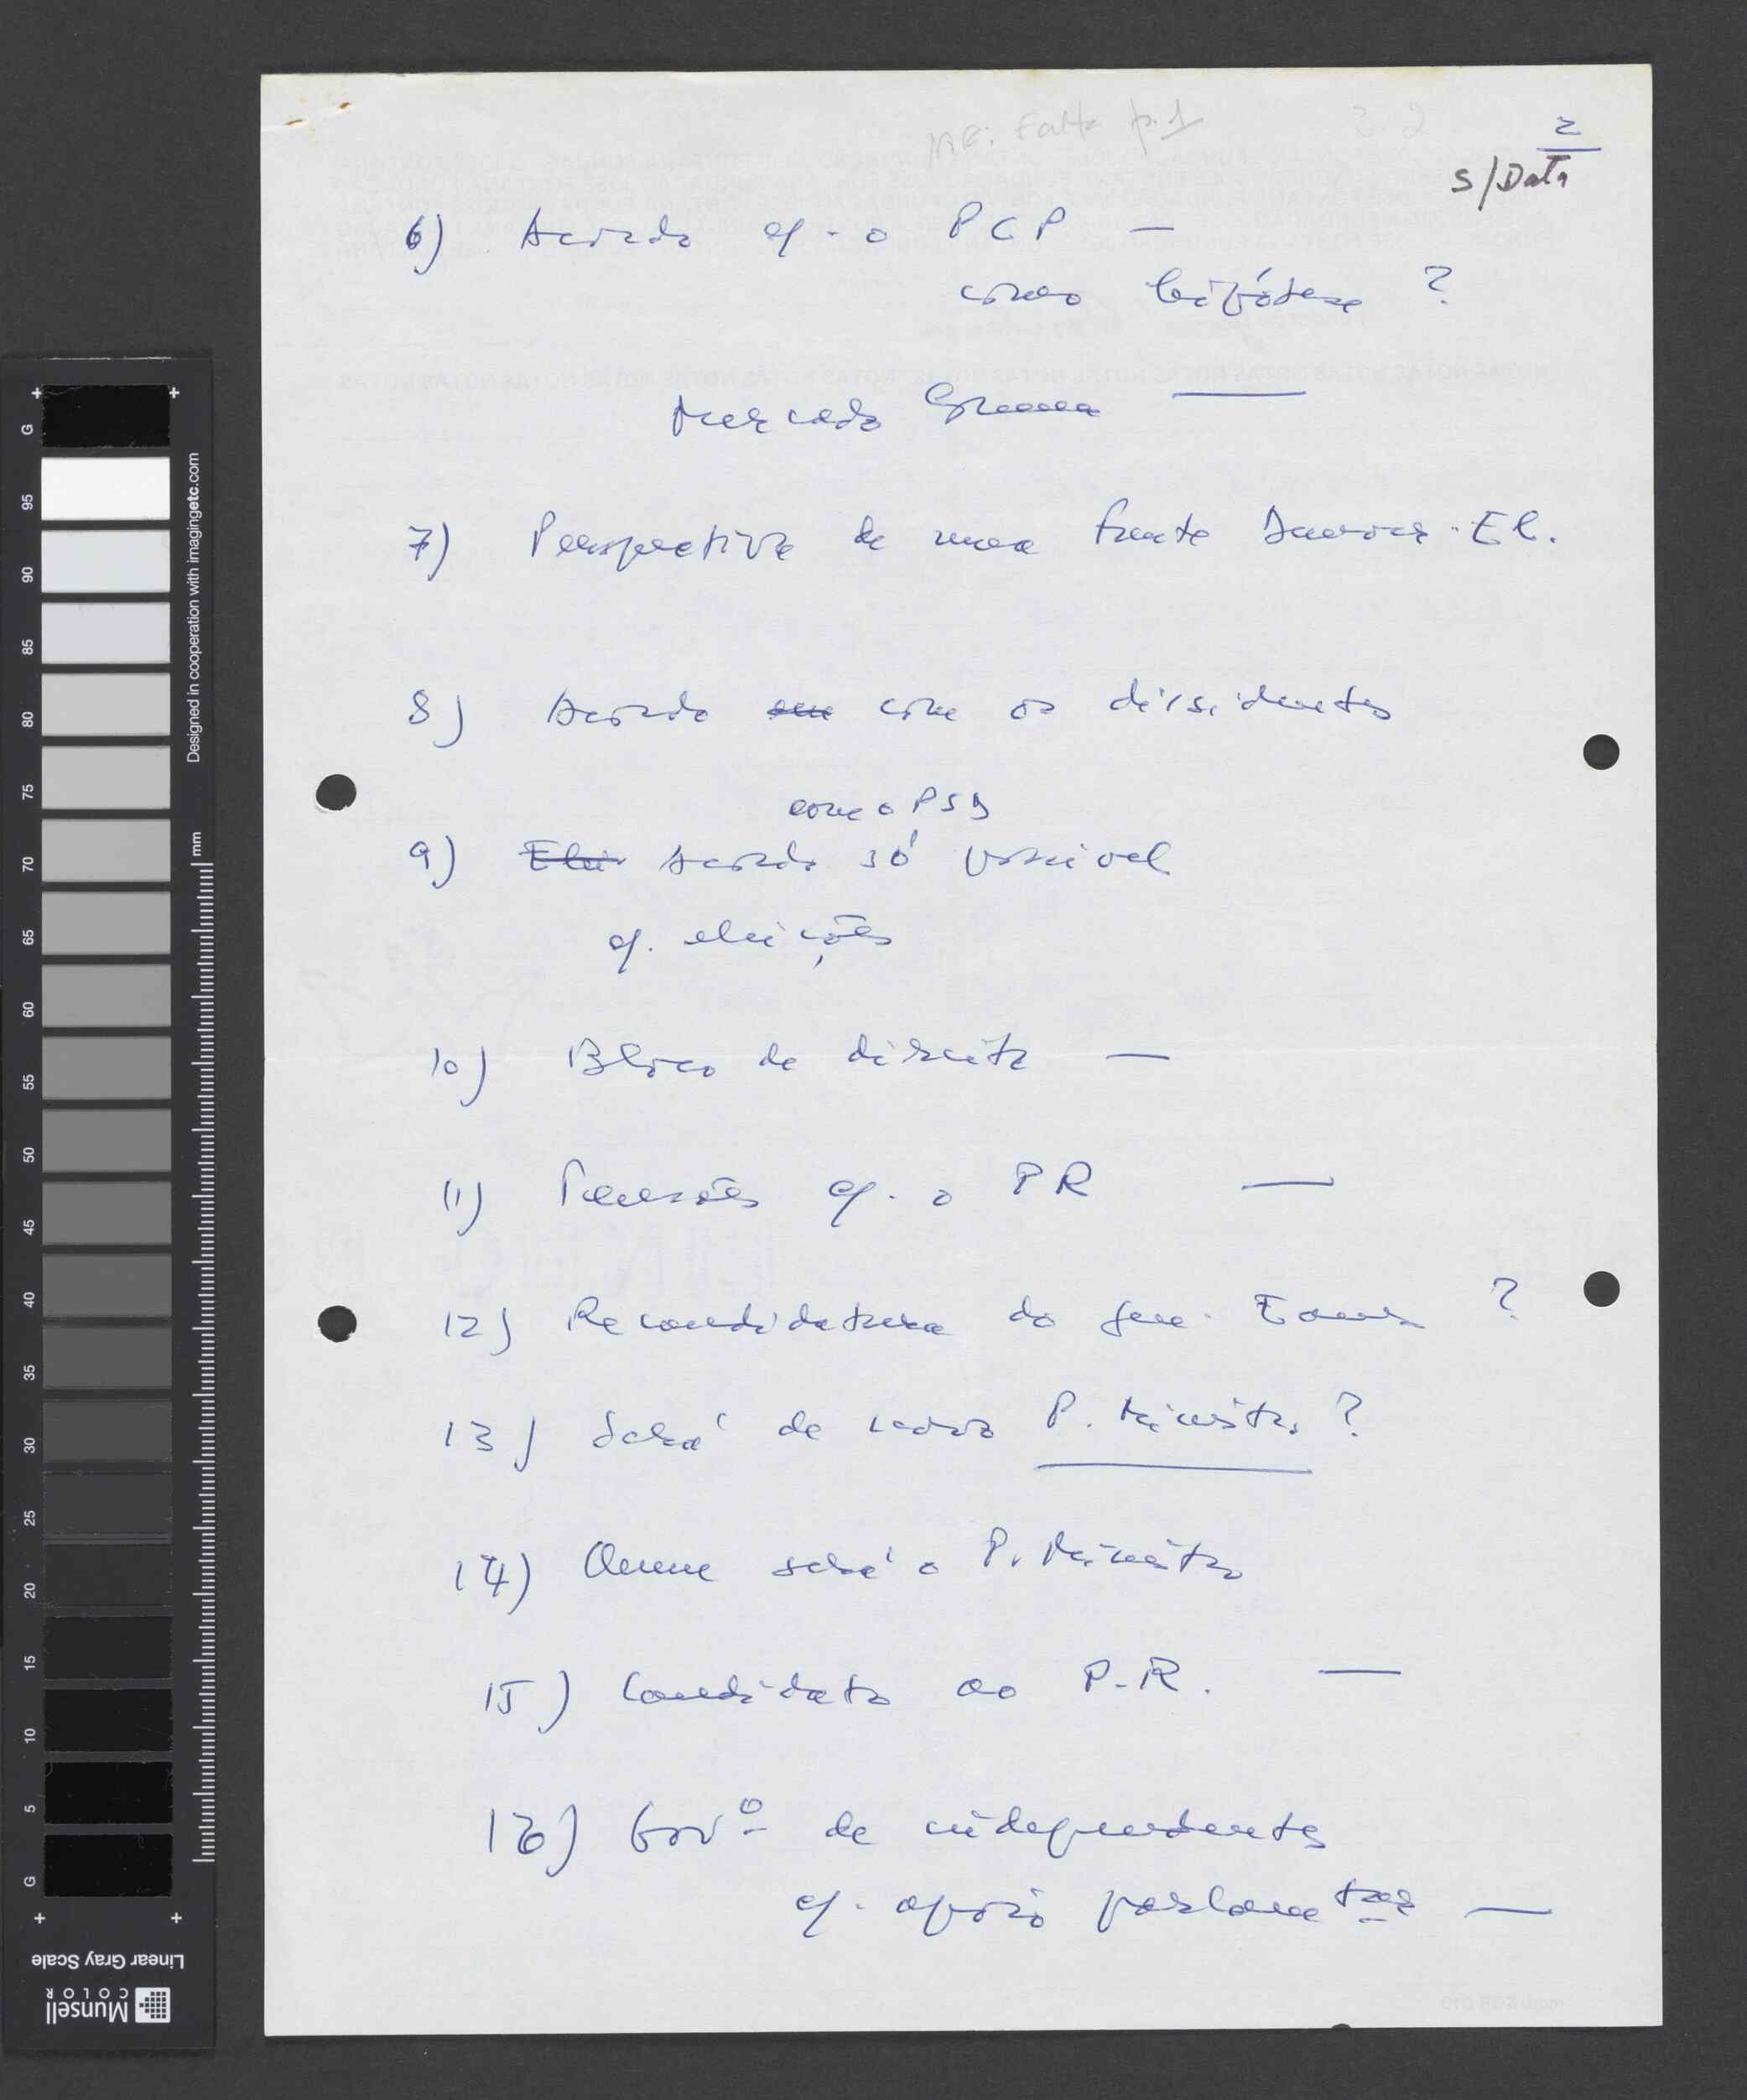 NB: Falta p. 1
2
S/Data
6) Acordo c/. o PCP —
como hipótese ?
Mercado Comum —
7) Perspectiva de uma frente Soares-El.
8) Acordo com os dissidentes
com o PSD
9) Elei Acordo só possível
c/. eleições
10) Bloco de direita —
11) Tensões c/. o PR —
12) Recandidatura do gen. Eanes ?
13) Será de novo P. Ministro ?
14) Quem será o P. Ministro
15) Candidato ao P.R. —
16) Govº de independentes
c/. apoio parlamentar —
G
95
90
85
80
75
70
65
60
55
50
45
40
35
30
25
20
15
10
5
G
Designed in cooperation with imagingetc.com
mm
Linear Gray Scale
Munsell
COLOR